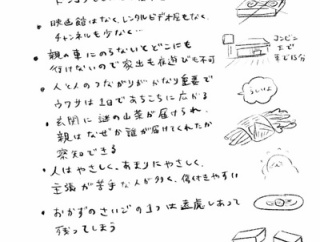 ・映画館はなく、レンタルビデオ店もなく、
チャンネルも少なく…
・親の車にのらないとどこにも
行けないので家出も夜遊びも不可
・人と人のつながりがかなり重要で
ウワサは1日であちこちに広がる
・玄関に謎の山菜が届けられ、
親はなぜか誰が届けてくれたか
察知できる
・人はやさしく、あまりにやさしく、
主張が苦手な人が多く、傷付きやすい
・おかずのさいごの1つは遠慮しあって
残ってしまう
コンビニ
まで
車で15分
うしいよ